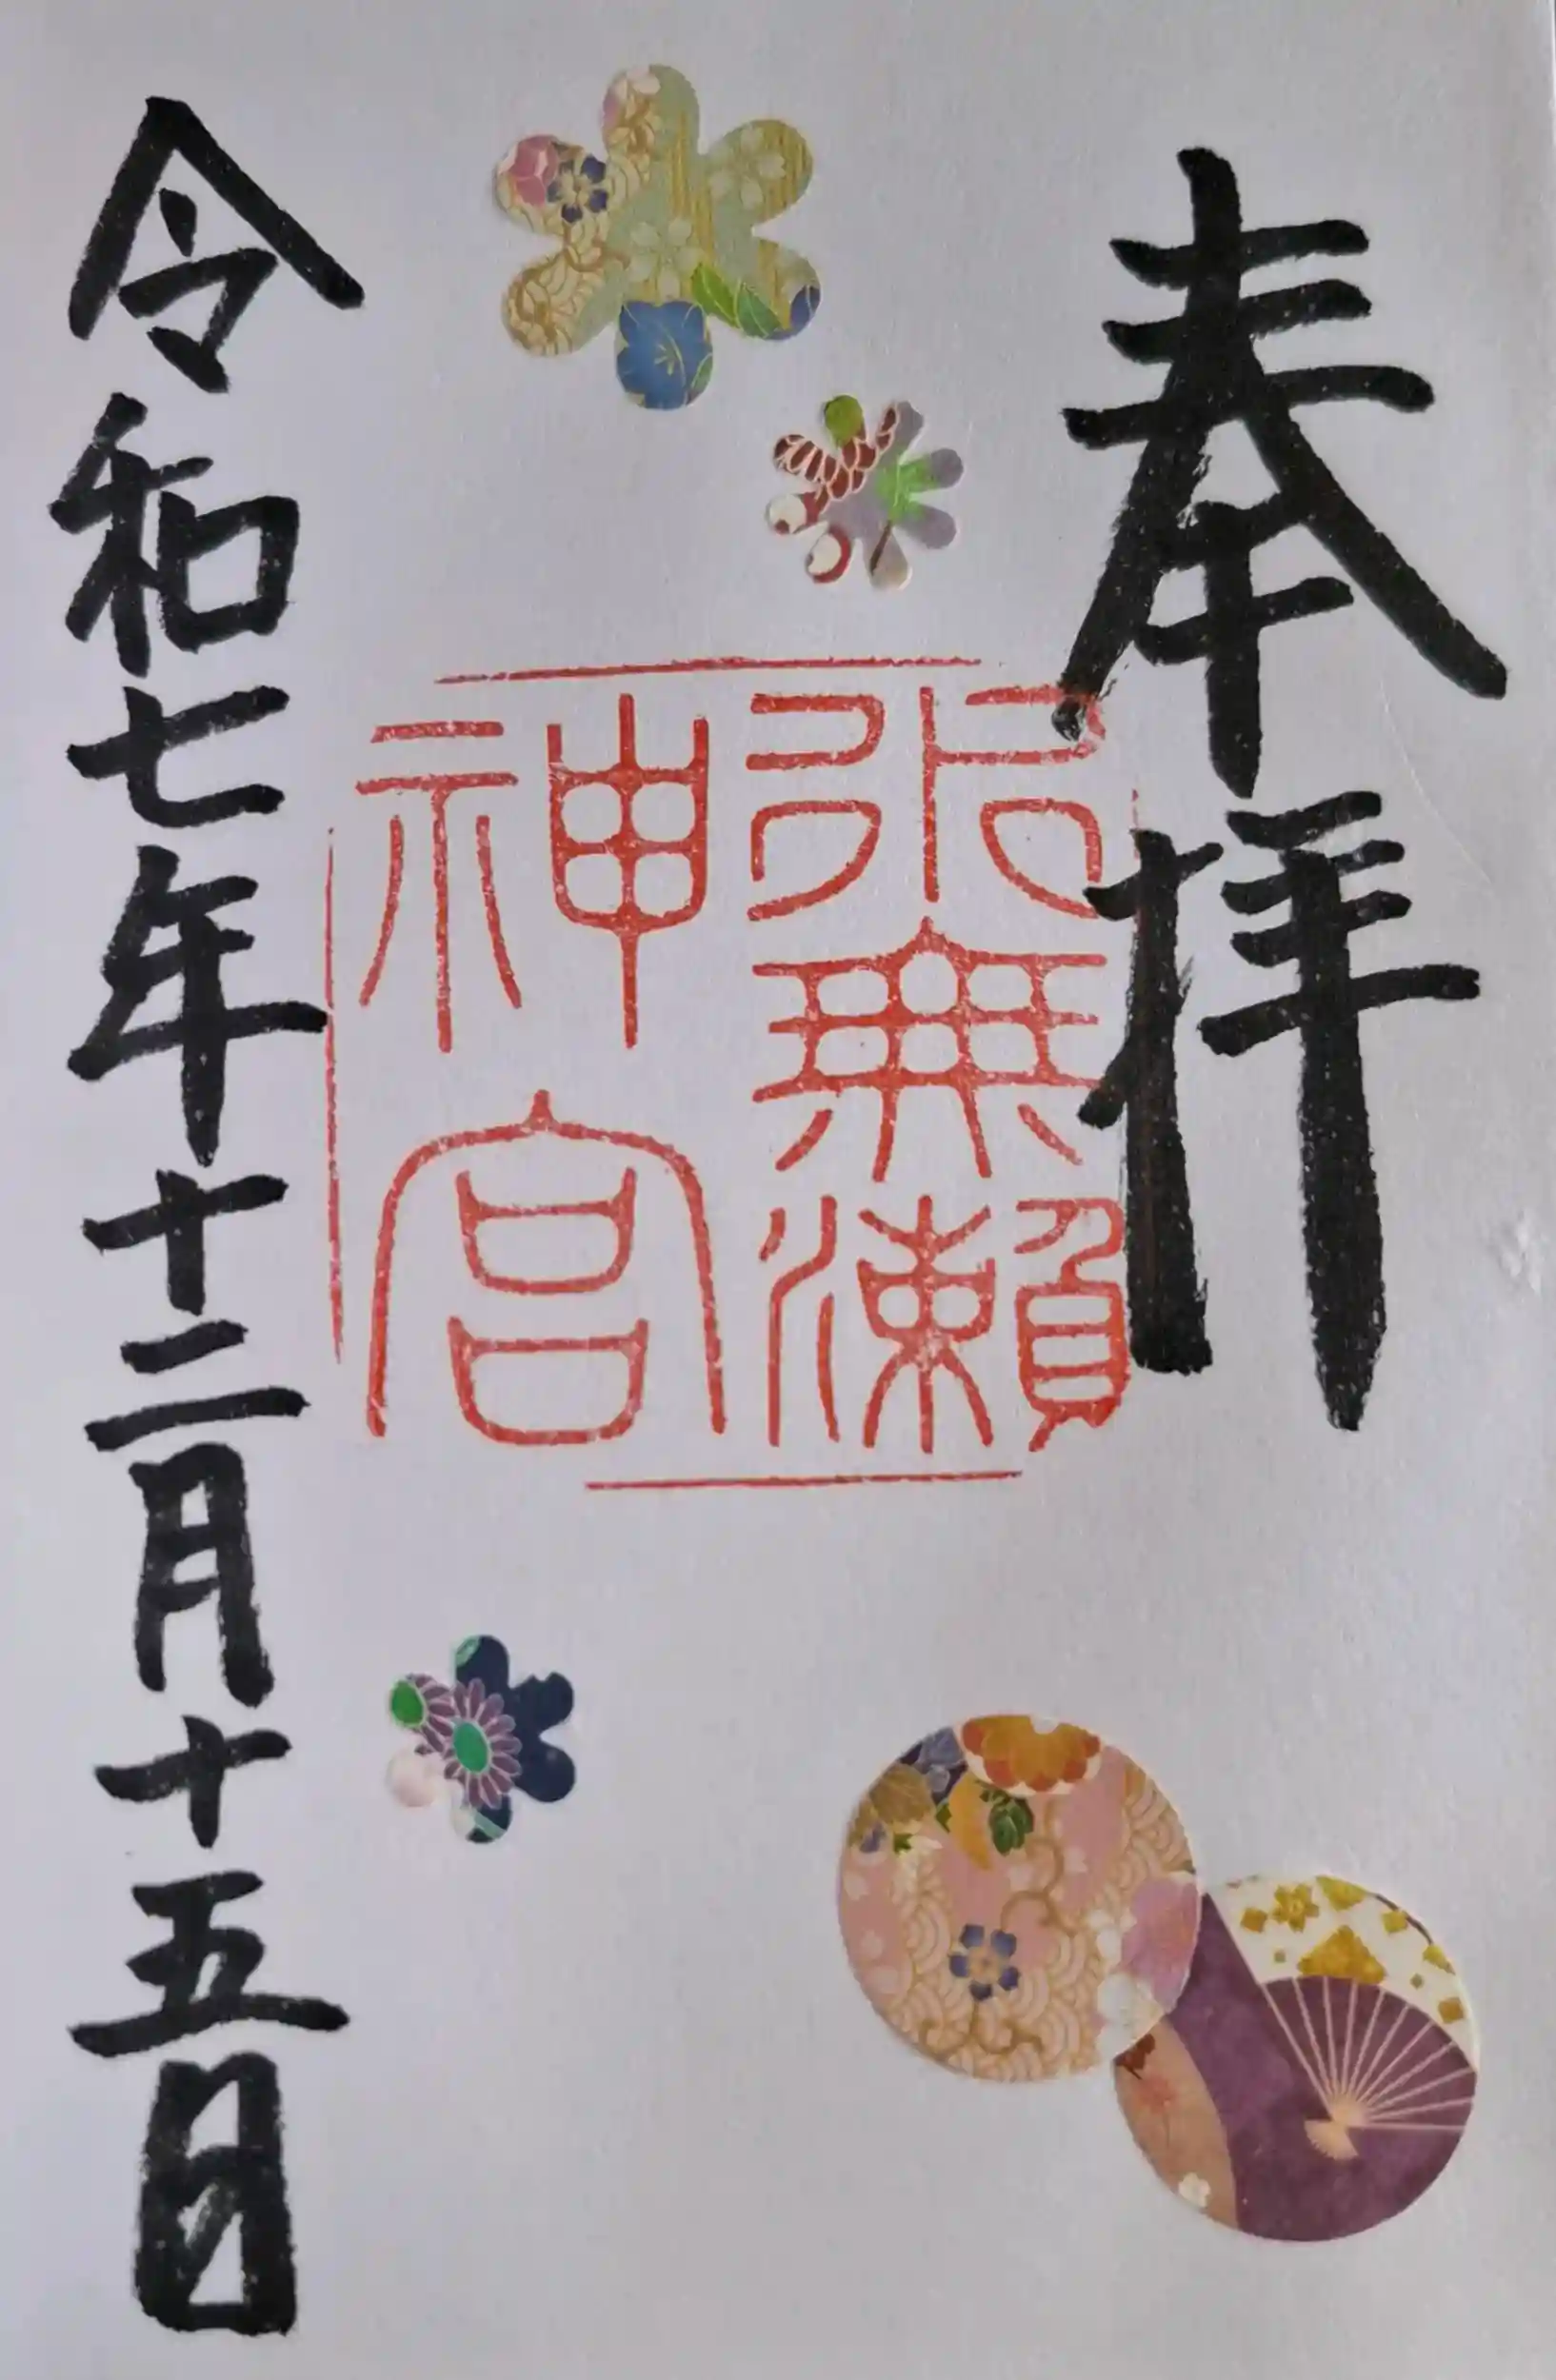 奉拝
水無瀨
神宮
令和七年十二月十五日